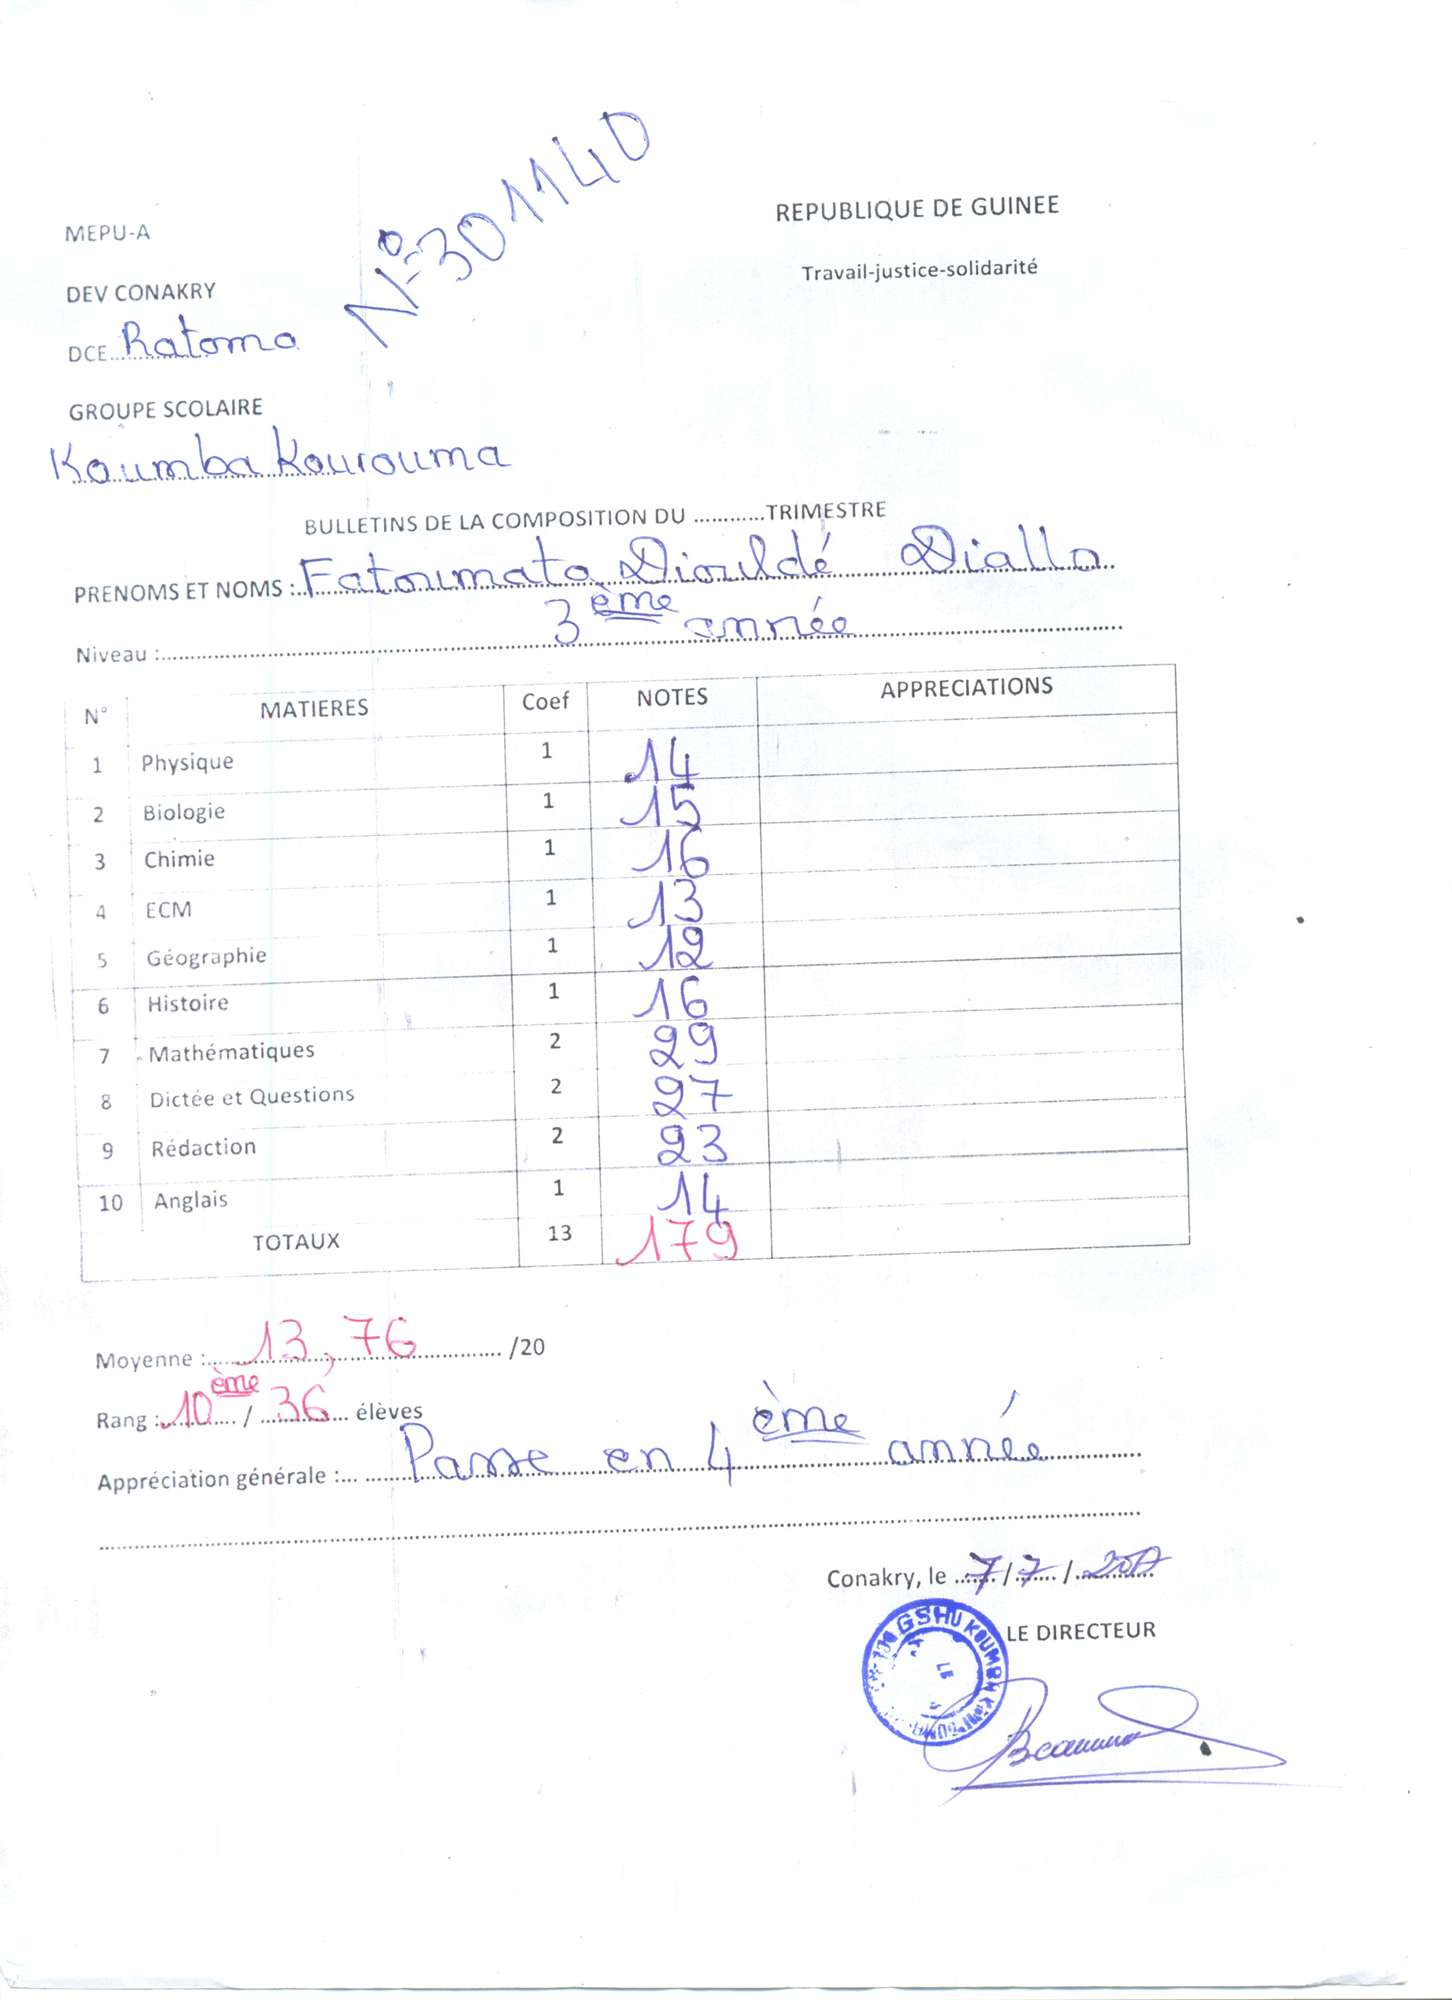 N° 301140
MEPU-A
REPUBLIQUE DE GUINEE
Travail-justice-solidarité
DEV CONAKRY
DCE...Ratoma
GROUPE SCOLAIRE
Koumba Kourouma
BULLETINS DE LA COMPOSITION DU ............TRIMESTRE
PRENOMS ET NOMS : Fatoumata Diouldé Diallo
Niveau : 3ème année
N° MATIERES Coef NOTES APPRECIATIONS
1 Physique 1 14
2 Biologie 1 15
3 Chimie 1 16
4 ECM 1 13
5 Géographie 1 12
6 Histoire 1 16
7 Mathématiques 2 29
8 Dictée et Questions 2 27
9 Rédaction 2 23
10 Anglais 1 14
TOTAUX 13 179
Moyenne : 13,76 /20
Rang : 10ème / 36 élèves
Appréciation générale : Passe en 4ème année
Conakry, le 7/7/2017
LE DIRECTEUR
GSHU KOUMBA